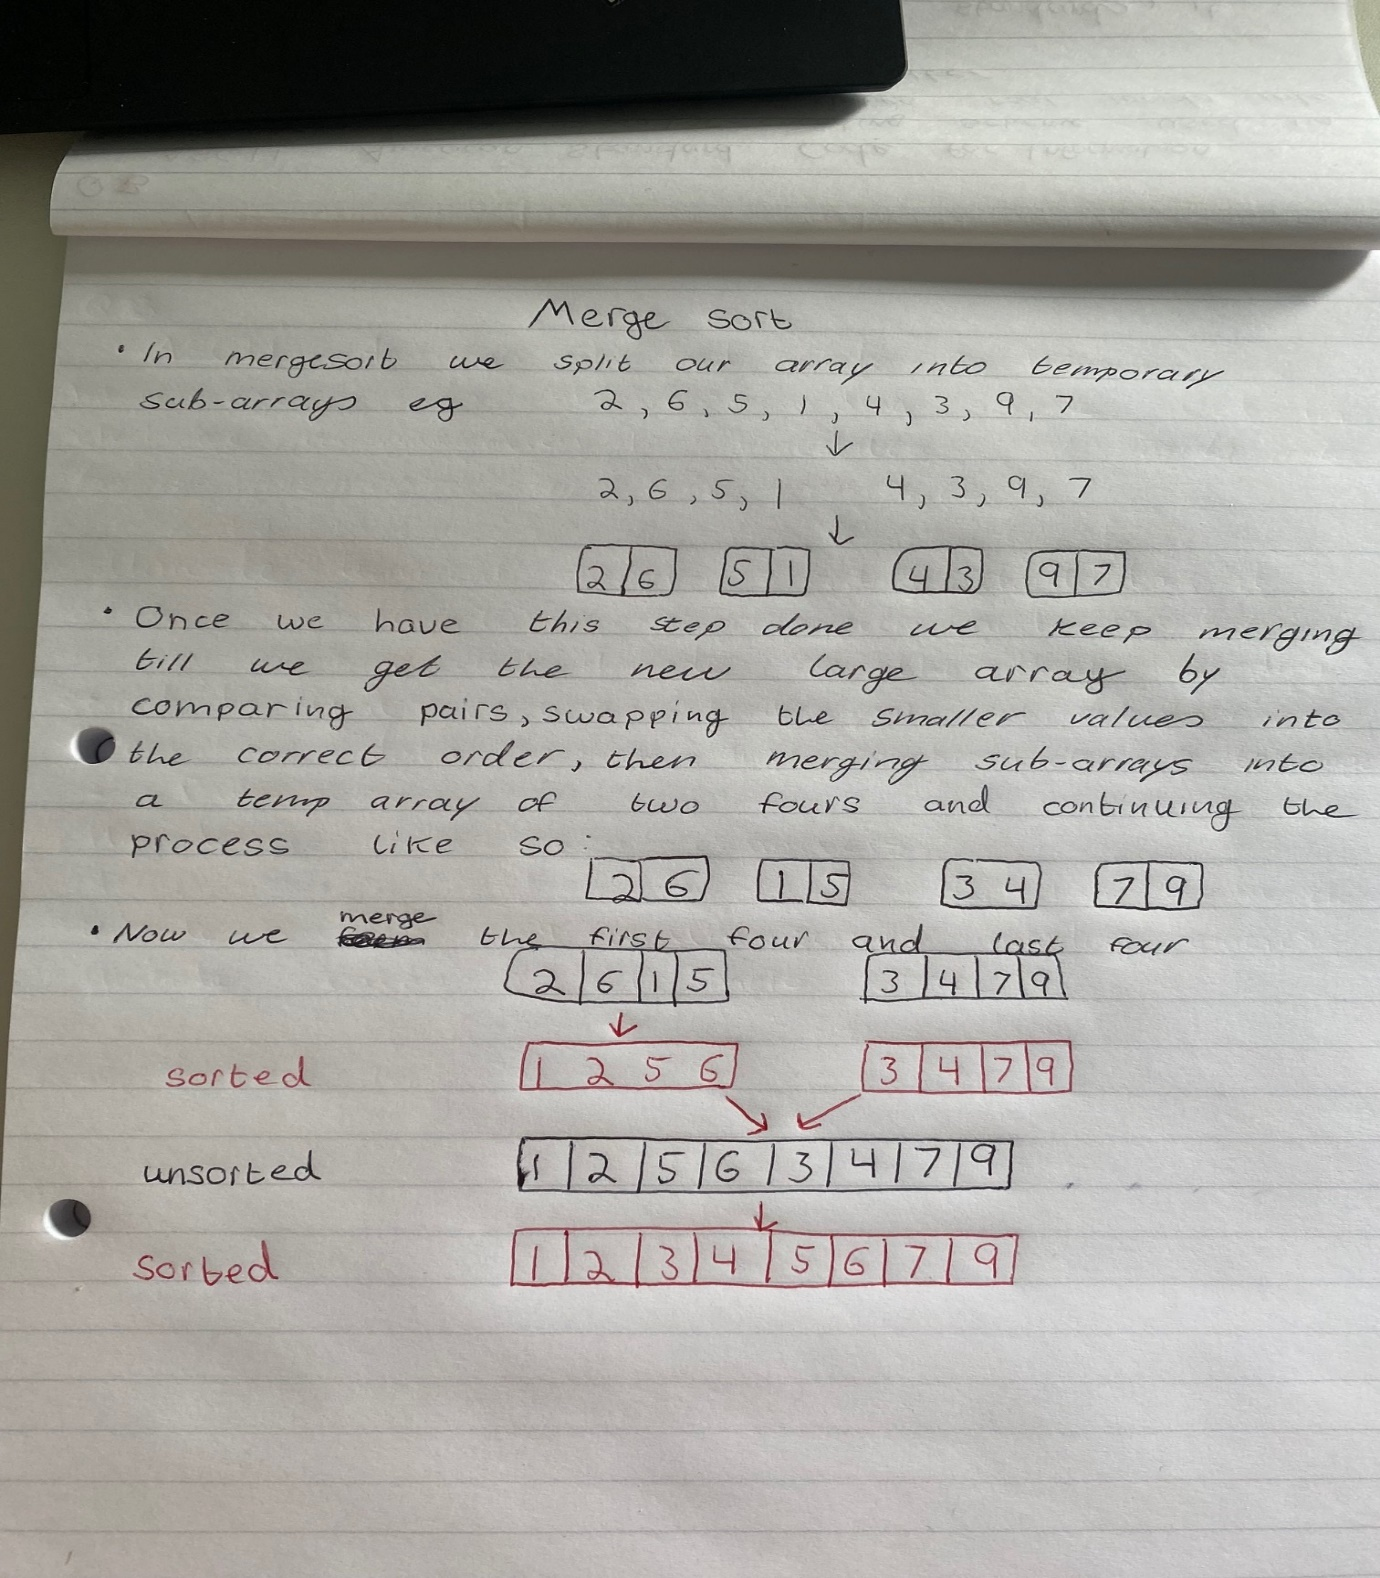 Merge sort
• In mergesort we split our array into temporary
sub-arrays eg 2, 6, 5, 1, 4, 3, 9, 7
↓
2, 6, 5, 1 4, 3, 9, 7
↓
2 6 5 1 4 3 9 7
• Once we have this step done we keep merging
till we get the new large array by
comparing pairs, swapping the smaller values into
the correct order, then merging sub-arrays into
a temp array of two fours and continuing the
process like so:
2 6 1 5 3 4 7 9
• Now we merge the first four and last four
2 6 1 5 3 4 7 9
↓
sorted 1 2 5 6 3 4 7 9
unsorted 1 2 5 6 3 4 7 9
↓
sorted 1 2 3 4 5 6 7 9